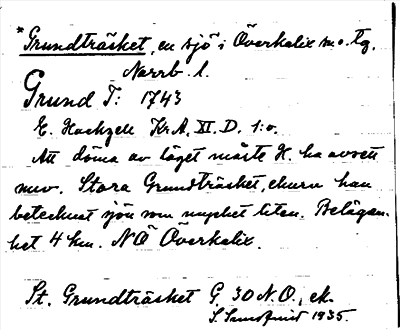 *Grundträsket, en sjö i Överkalix sn o. tg,
Norrb. l.
Grund T: 1743
E. Hackzell Kr.A, XI. D. 1:o.
Att döma av läget måste H. ha avsett
nuv. Stora Grundträsket, ehuru han
betecknat sjön som mycket liten. Belägen-
het 4 km. NÖ Överkalix.
St. Grundträsket G. 30 N.O., ek.
1935